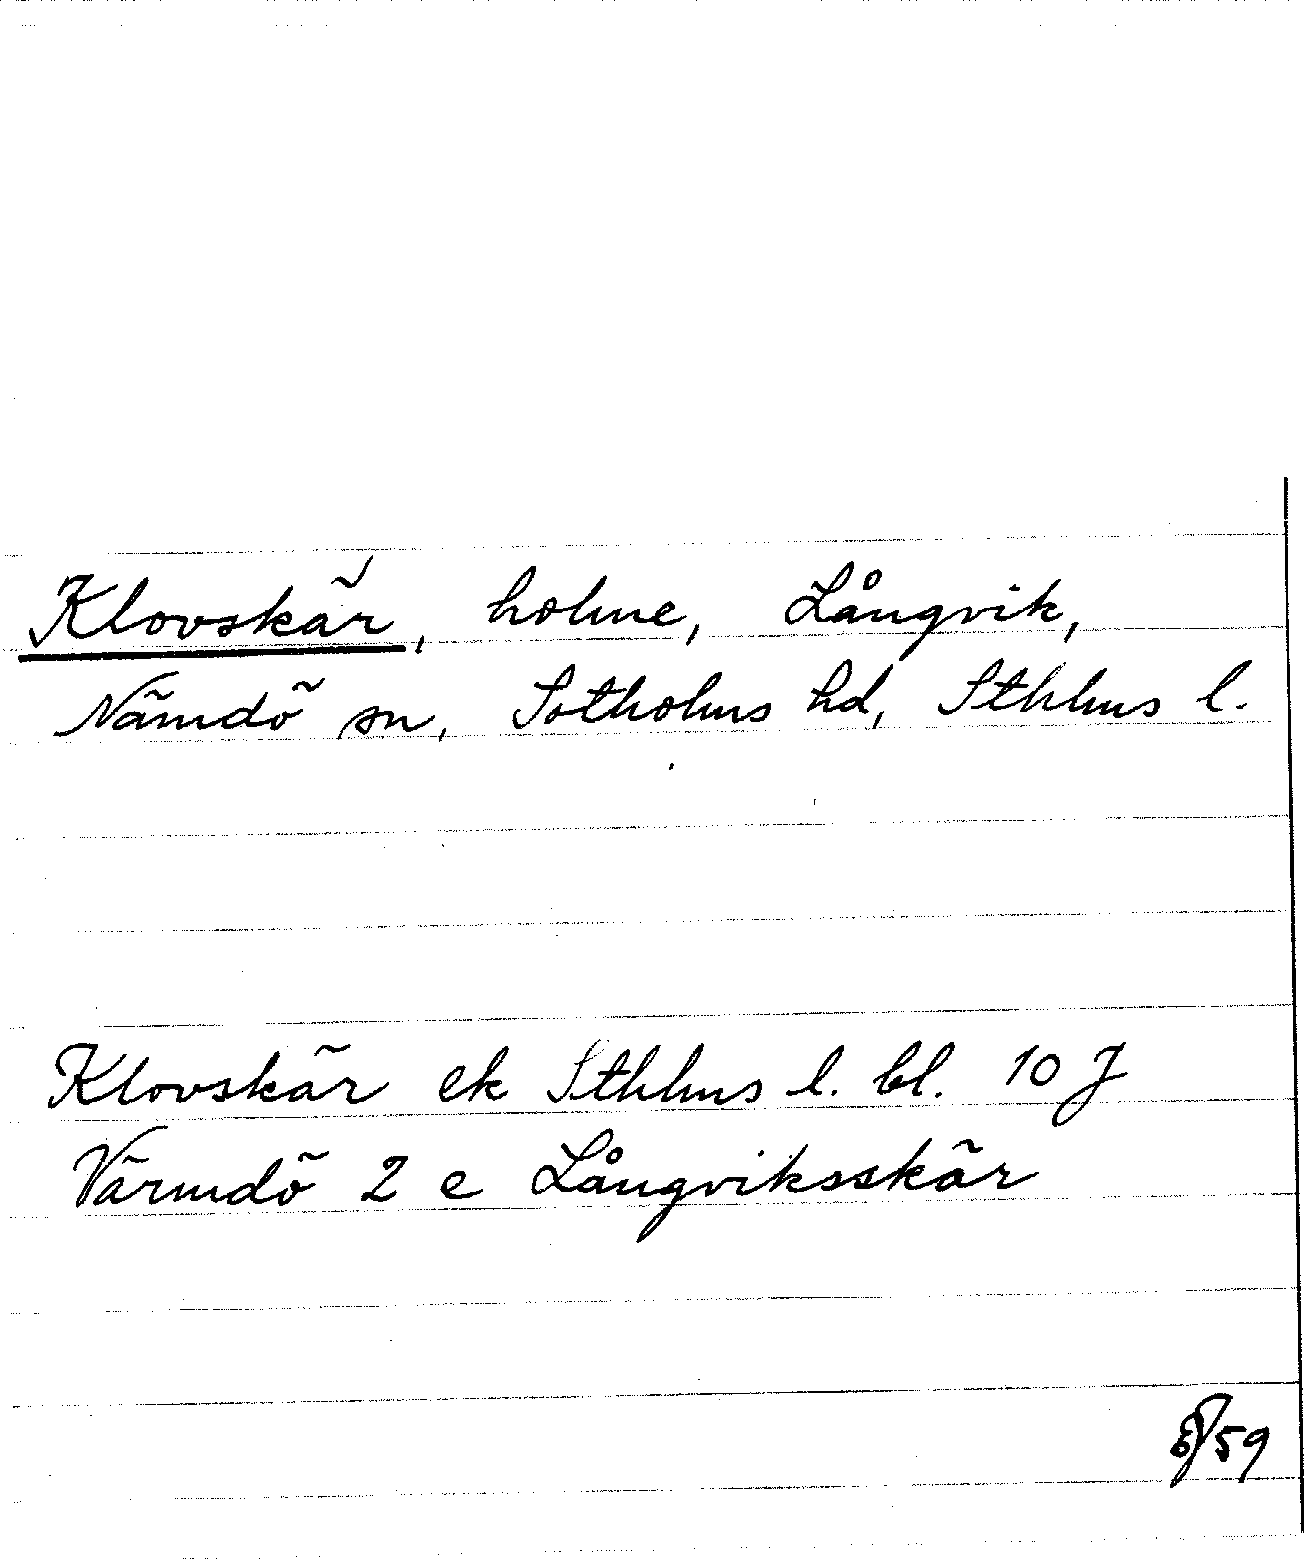 Klovskär, holme, Långvik,
Nämdö sn, Sotholms hd, Sthlms l.
Klovskär ek Sthlms l. bl. 10 J
Värmdö 2 e Långviksskär
59